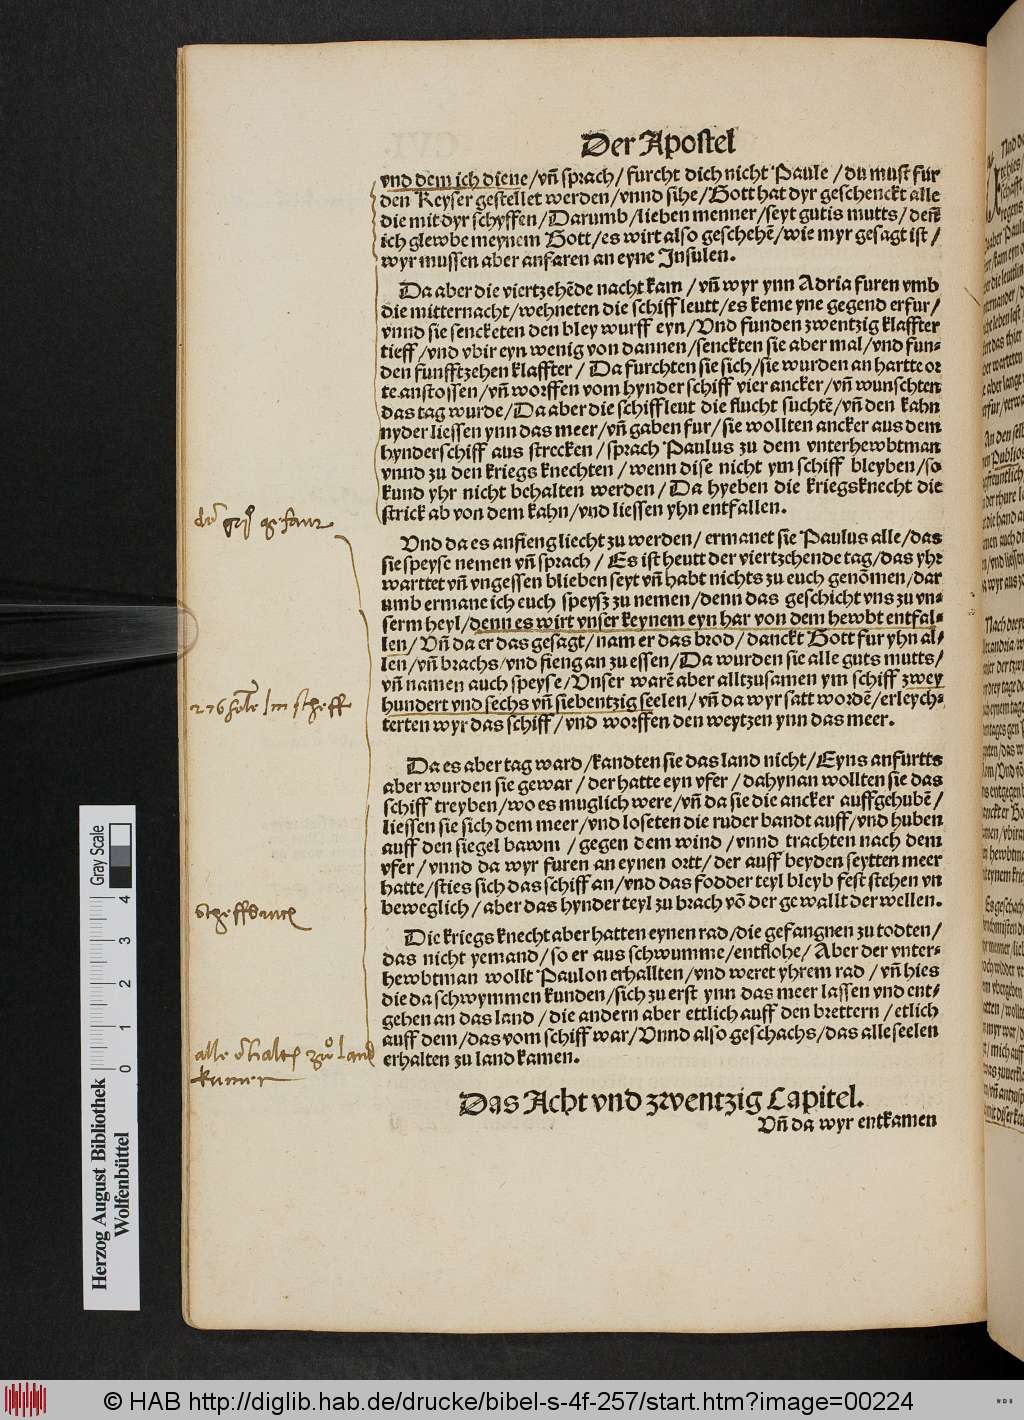 Der Apostel
vnd dem ich diene/vñ sprach/furcht dich nicht Paule/du must fur
den Keyser gestellet werden/vnnd sihe/Gott hat dyr geschenckt alle
die mit dyr schyffen/Darumb/lieben menner/seyt gutis mutts/deñ
ich glewbe meynem Gott/es wirt also geschehẽ/wie myr gesagt ist/
wyr mussen aber anfaren an eyne Insulen.
Da aber die viertzehẽde nacht kam/vñ wyr ynn Adria furen vmb
die mitternacht/wehneten die schiff leutt/es keme yne gegend erfur/
vnnd sie senckten den bley wurff eyn/Vnd funden zwentzig klaffter
tieff/vnd vbir eyn wenig von dannen/senckten sie aber mal/vnd fun-
den funfftzehen klaffter/Da furchten sie sich/sie wurden an hartte or
te anstossen/vñ worffen vom hynder schiff vier ancker/vñ wunschten
das tag wurde/Da aber die schiff leut die flucht suchtẽ/vñ den kahn
nyder liessen ynn das meer/vñ gaben fur/sie wollten ancker aus dem
hynderschiff aus strecken/sprach Paulus zu dem vnterhewbtman
vnnd zu den kriegs knechten/wenn dise nicht ym schiff bleyben/so
kund yhr nicht behalten werden/Da hyeben die kriegsknecht die
strick ab von dem kahn/vnd liessen yhn entfallen.
Vnd da es anfieng liecht zu werden/ermanet sie Paulus alle/das
sie speyse nemen vñ sprach/Es ist heutt der viertzehende tag/das yhr
warttet vñ vngessen blieben seyt vñ habt nichts zu euch genõmen/dar
umb ermane ich euch speysz zu nemen/denn das geschicht vns zu vn-
serm heyl/denn es wirt vnser keynem eyn har von dem hewbt entfal-
len/Vñ da er das gesagt/nam er das brod/danckt Gott fur yhn al-
len/vñ brachs/vnd fieng an zu essen/Da wurden sie alle guts mutts/
vñ namen auch speyse/Vnser warẽ aber alltzusamen ym schiff zwey
hundert vnd sechs vñ siebentzig seelen/vñ da wyr satt wordẽ/erleych-
terten wyr das schiff/vnd worffen den weytzen ynn das meer.
276 im scheff
Da es aber tag ward/kandten sie das land nicht/Eyns anfurtts
aber wurden sie gewar/der hatte eyn vfer/dahynan wollten sie das
schiff treyben/wo es muglich were/vñ da sie die ancker auffgehubẽ/
liessen sie sich dem meer/vnd loseten die ruder bandt auff/vnd huben
auff den siegel bawm/gegen dem wind/vnnd trachten nach dem
vfer/vnnd da wyr furen an eynen ortt/der auff beyden seytten meer
hatte/sties sich das schiff an/vnd das fodder teyl bleyb fest stehen vn
beweglich/aber das hynder teyl zu brach võ der gewallt der wellen.
Die kriegs knecht aber hatten eynen rad/die gefangnen zu todten/
das nicht yemand/so er aus schwumme/entflohe/Aber der vnter-
hewbtman wollt Paulon erhallten/vnd weret yhrem rad/vñ hies
die da schwymmen kunden/sich zu erst ynn das meer lassen vnd ent-
gehen an das land/die andern aber ettlich auff den brettern/etlich
auff dem/das vom schiff war/Vnnd also geschachs/das alle seelen
erhalten zu land kamen.
alle land
Das Acht vnd zwentzig Capitel.
Vñ da wyr entkamen
Gray Scale
0 1 2 3 4
Herzog August Bibliothek
Wolfenbüttel
© HAB http://diglib.hab.de/drucke/bibel-s-4f-257/start.htm?image=00224